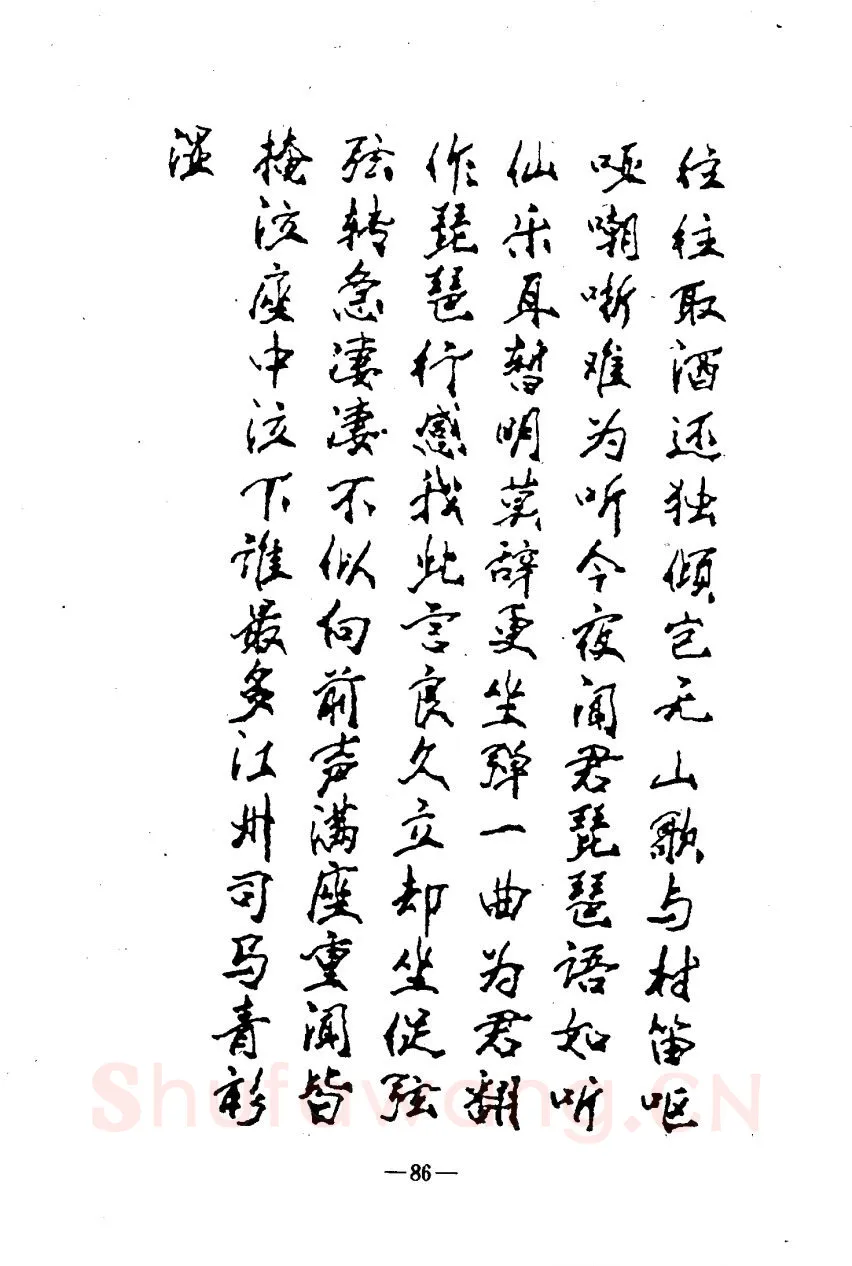 往往取酒还独倾岂无山歌与村笛呕
哑嘲哳难为听今夜闻君琵琶语如听
仙乐耳暂明莫辞更坐弹一曲为君翻
作琵琶行感我此言良久立却坐促弦
弦转急凄凄不似向前声满座重闻皆
掩泣座中泣下谁最多江州司马青衫
湿
—86—
Shufawang.CN